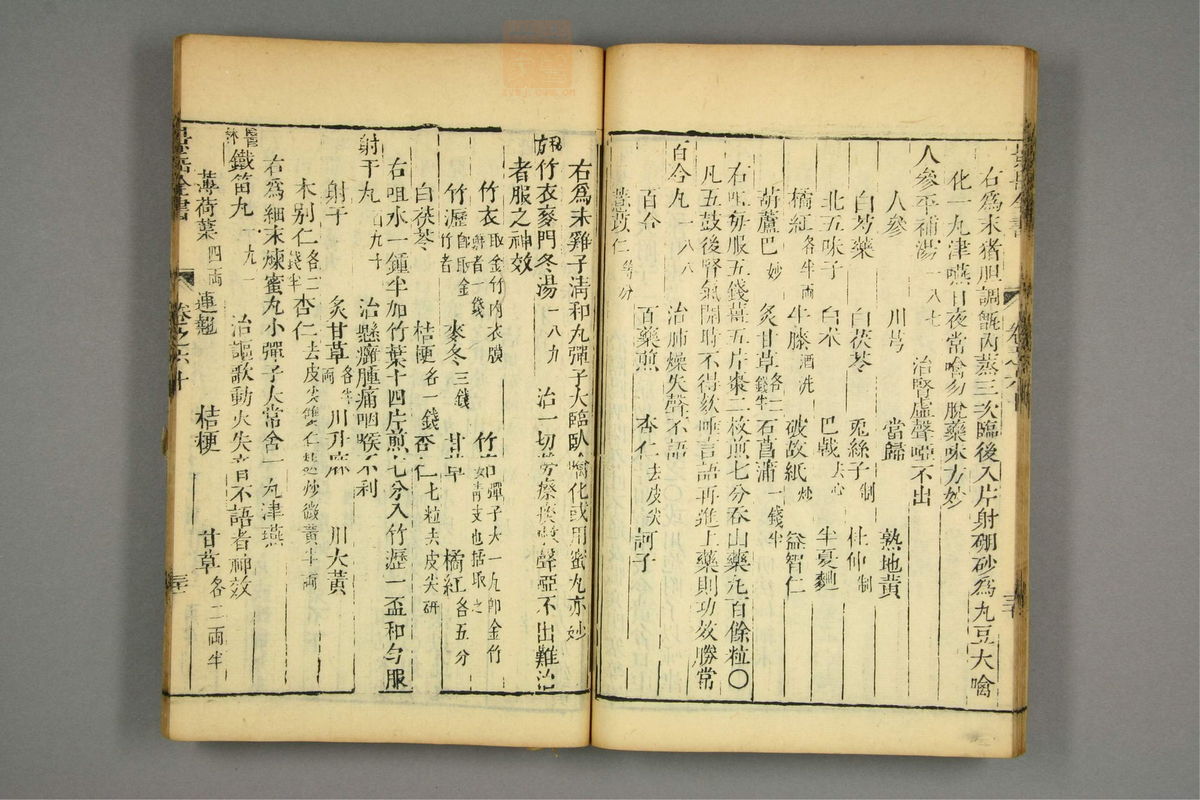 右爲末猪胆調甑內蒸三次臨後入片射硼砂爲丸豆大噙
化一丸津嚥日夜常噙勿脫藥味方妙
人參平補湯 一八七 治腎虛聲啞不出
人參 川芎 當歸 熟地黃
白芍藥 白茯苓 兎絲子 制 杜仲 制
北五味子 白朮 巴戟 去心 半夏麯
橘紅 各半両 牛膝 酒洗 破故紙 炒 益智仁
葫蘆巴 炒 炙甘草 各二錢半 石菖蒲 一錢半
右咀每服五錢薑五片棗二枚煎七分吞山藥丸百餘粒○
凡五鼓後腎氣開時不得欬唾言語再進上藥則功效勝常
百合丸 一八八 治肺燥失聲不語
百合 百藥煎 杏仁 去皮尖 訶子
薏苡仁 等分
右爲末雞子淸和丸彈子大臨臥噙化或用蜜丸亦妙
秘方 竹衣麥門冬湯 一八九 治一切勞瘵痰嗽聲啞不出難治
者服之神效
竹衣 取金竹內衣膜鮮者一錢 竹茹 彈子大一丸卽金竹靑皮也括取之
竹瀝 卽取金竹者 麥冬 三錢 甘草 橘紅 各五分
白茯苓 桔梗 各一錢 杏仁 七粒去皮尖研
右咀水一鍾半加竹葉十四片煎七分入竹瀝一盃和勻服
射干丸 百九十 治懸癰腫痛咽喉不利
射干 炙甘草 各半両 川升麻 川大黃
木别仁 各二錢半 杏仁 去皮尖雙仁麩炒微黃半両
右爲細末煉蜜丸小彈子大常含一丸津嚥
鐵笛丸 百九一 治謳歌動火失音不語者神效
薄荷葉 四両 連翹 桔梗 甘草 各二両半
景岳全書 卷之六十